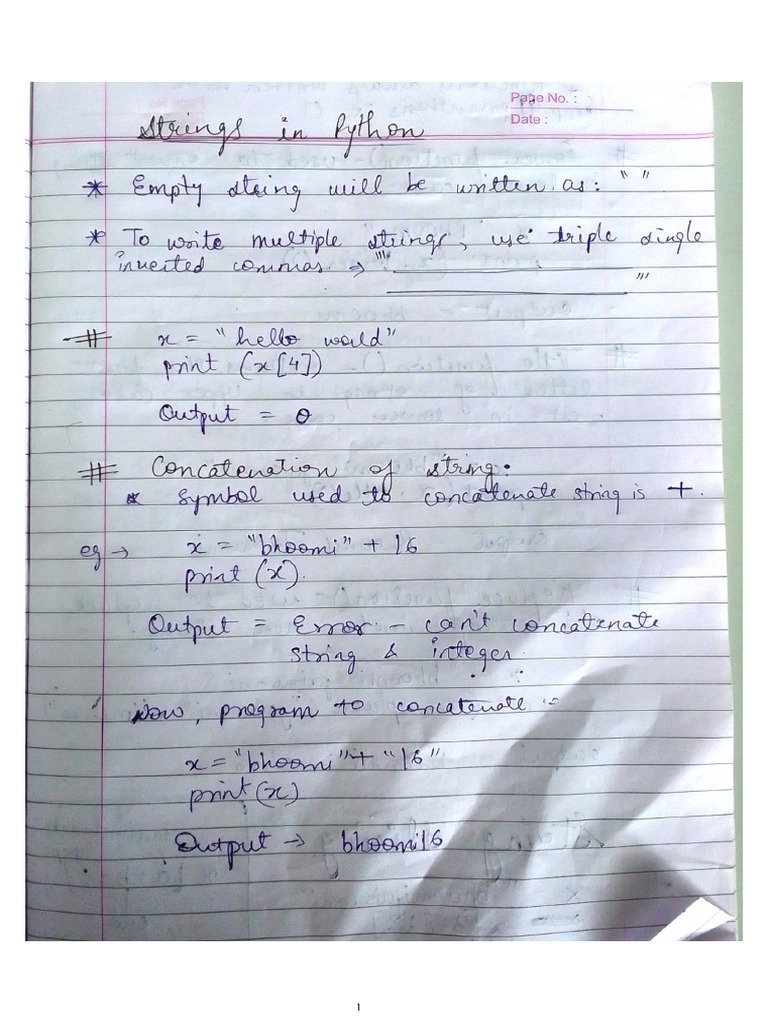 Page No. :
Date :
Strings in Python
* Empty string will be written as: " "
* To write multiple strings, use triple single
inverted commas. ⇒ '''
'''
# x = "hello world"
print (x[4])
Output = o
# Concatenation of string.
* Symbol used to concatenate string is +.
eg → x = "bhoomi" + 16
print (x).
Output = Error - can't concatenate
string & integer.
Now, program to concatenate :-
x = "bhoomi" + "16"
print (x)
Output → bhoomi16
1